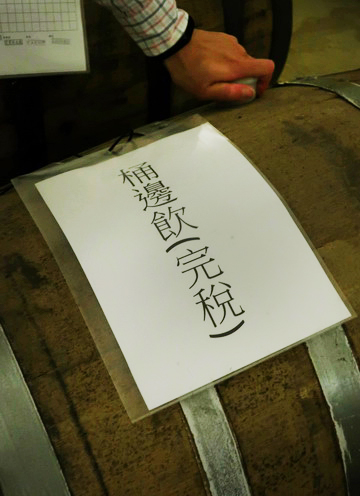 桶邊飲(完稅)